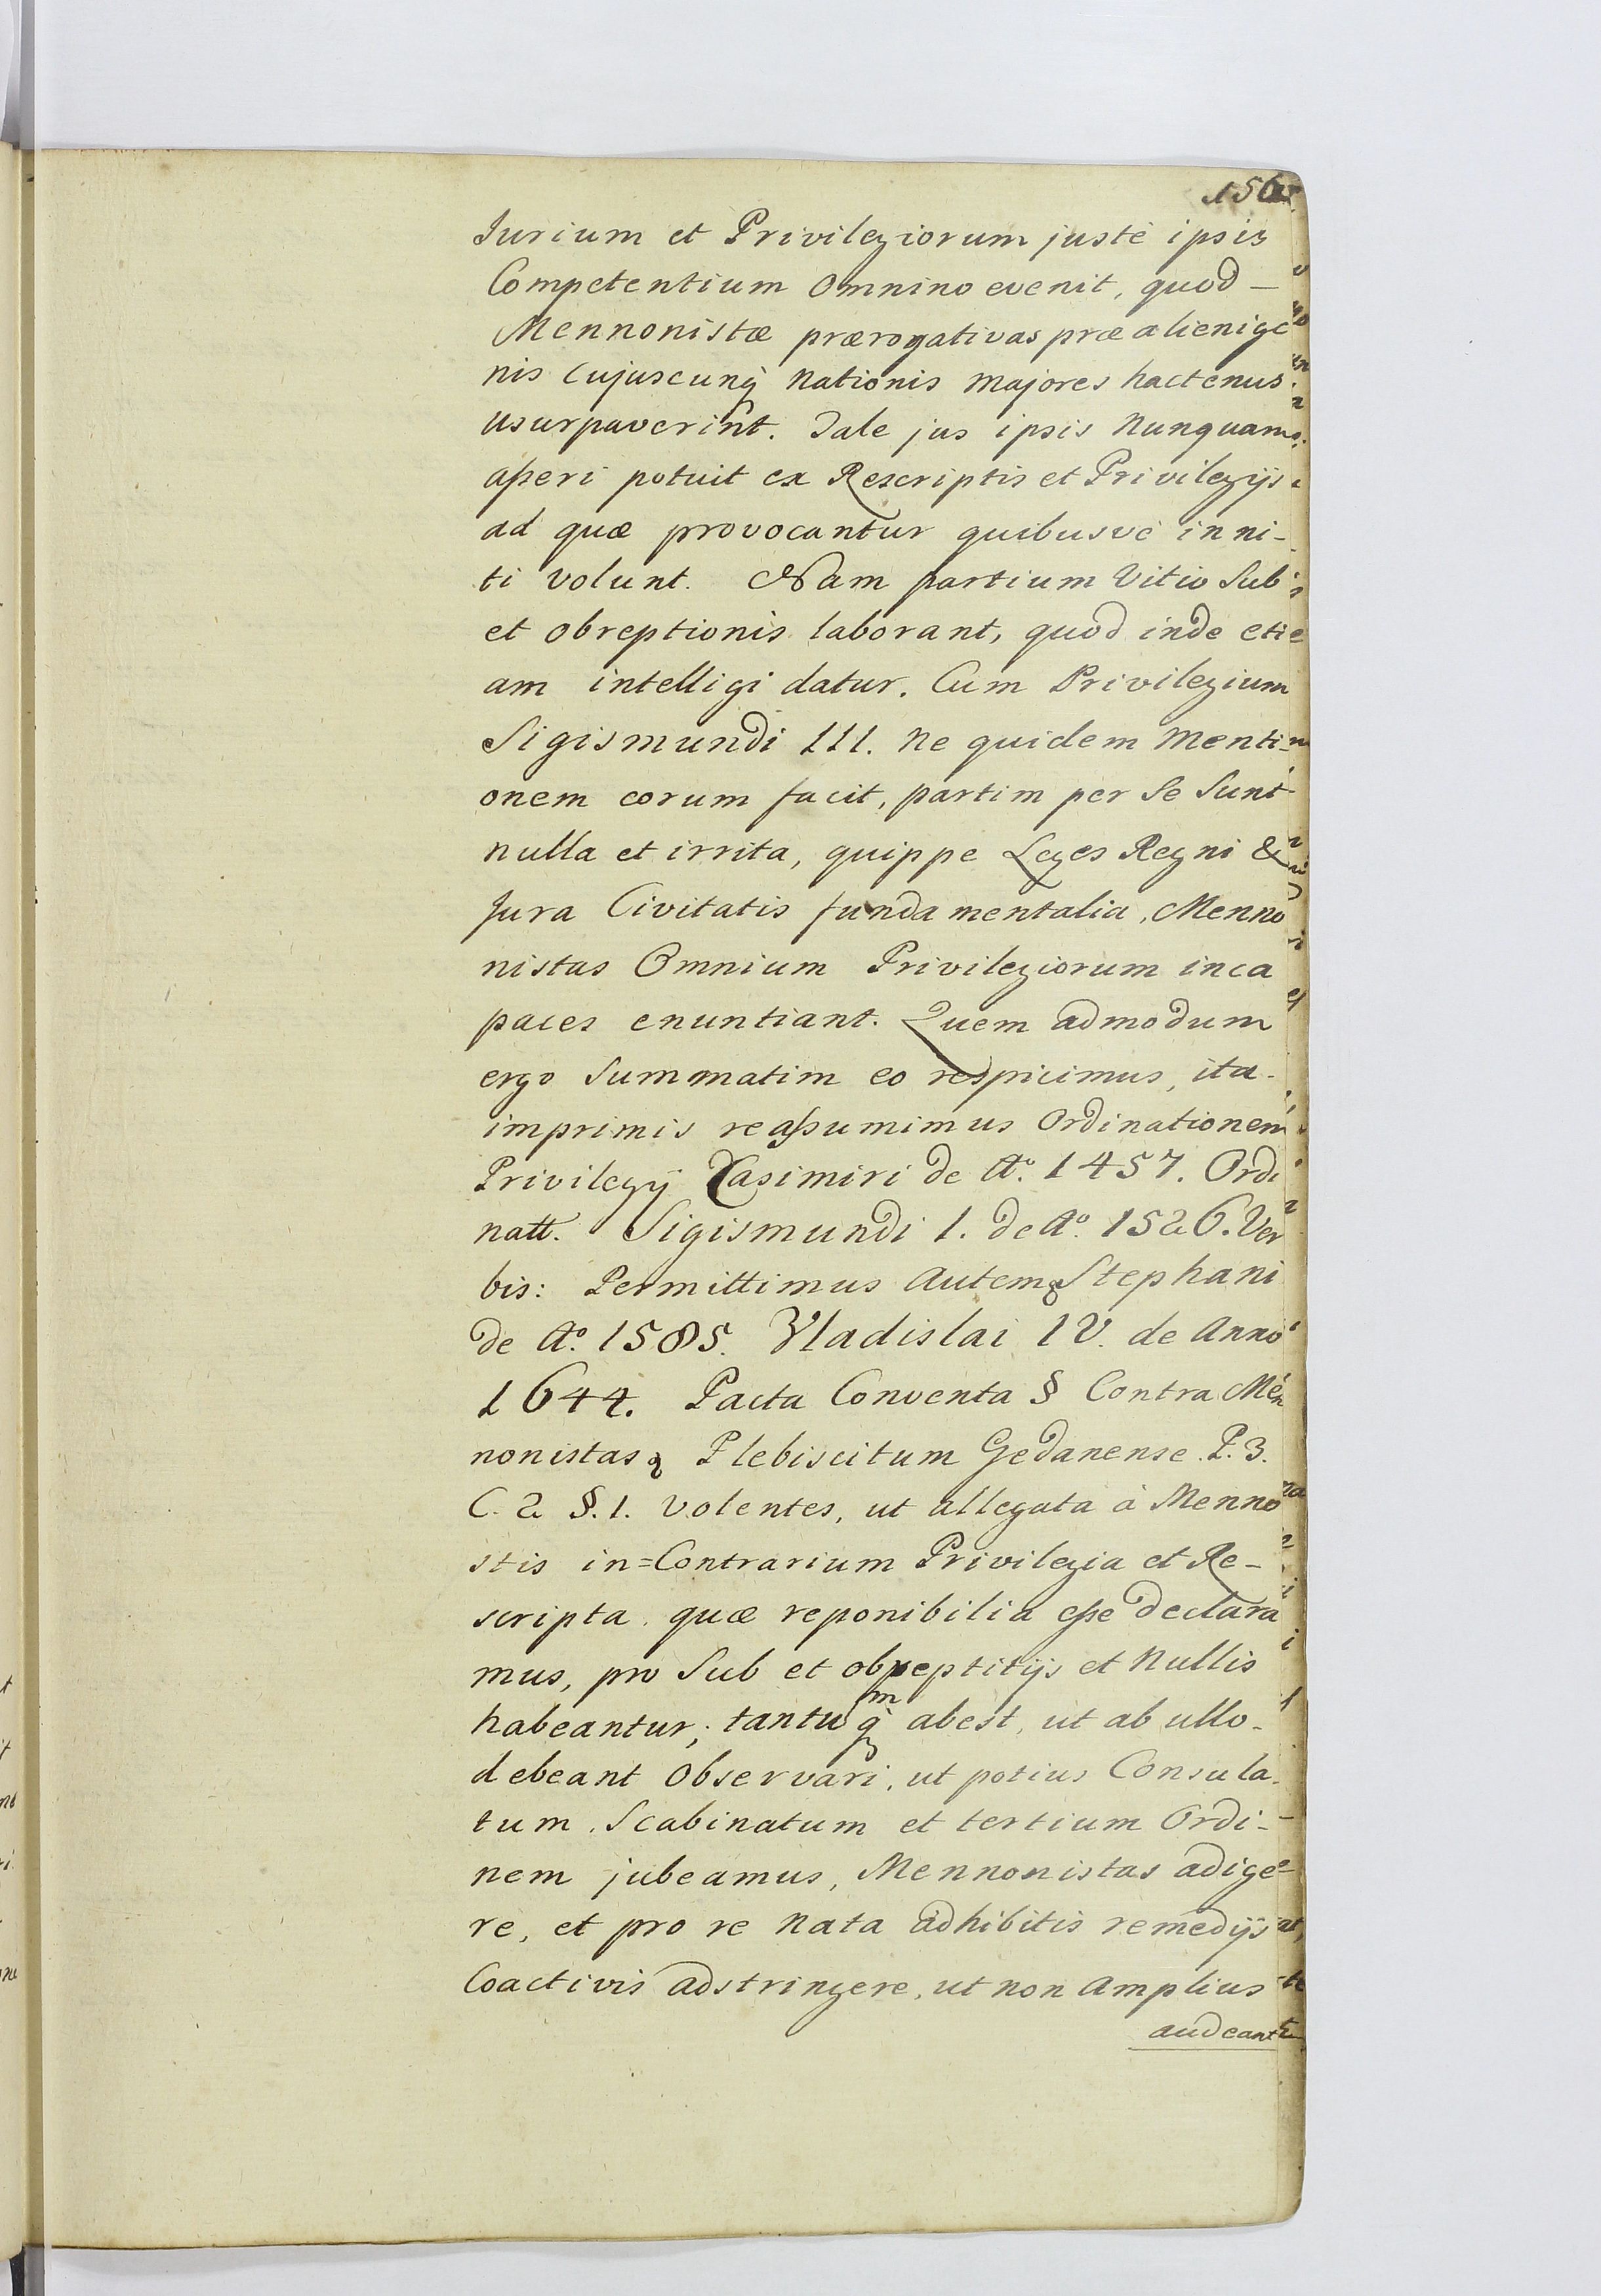 156
Jurium et Privilegiorum justè ipsis
Competentium omnino evenit, quod –
Mennonistæ prærogativas præ alienige
nis cujuscunq̀ nationis majores hactenus
usurpaverint. Tale jus ipsis nunquam
aſseri potuit ex Rescriptis et Privilegijs
ad quæ provocantur quibusvè inni-
ti volunt. Nam partium vitio Sub
et obreptionis laborant, quod inde eti
am intelligi datur. Cum Privilegium
Sigismundi III. ne quidem menti-
onem eorum facit, partim per se sunt
nulla et irrita, quippe Leges Regni &
Jura Civitatis fundamentalia, Menno
nistas Omnium Privilegiorum inca
paces enuntiant. Quem admodum
ergo Summatim eo respicimus, ita-
imprimis reaſsumimus Ordinationem
Privilegij Casimiri de Aº. 1457. Ordi
natt. Sigismundi I. de Aº. 1526. Ver
bis: Permittimus autem Stephani
de Aº. 1585. Vladislai IV. de Anno
1644. Pacta Conventa § Contra Men
nonistas Plebiscitum Gedanense. P. 3.
C. 2 §. 1. volentes, ut allegata à Menno
stis in=Contrarium Privilegia et Re-
scripta, quæ reponibilia eſse declara
mus, pro Sub et obreptitijs et Nullis
habeantur; tantu q̀ m abest, ut ab ullo-
debeant observari, ut potius Consula-
tum, Scabinatum et tertium Ordi-
nem jubeamus, Mennonistas adige-
re, et pro re nata adhibitis remedijs
Coactivis adstringere, ut non amplius
audeant